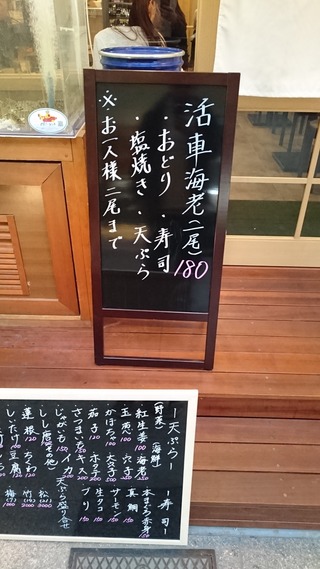 活車海老(一尾)180
・おどり ・寿司
・塩焼き ・天ぷら
※お一人様二尾まで
ー天ぷらー
(野菜)
紅生姜 100
玉葱 100
かぼちゃ 100
茄子 120
さつまいも
じゃがいも 150
しし唐
蓮根 120
しいたけ
(海鮮)
海老 250
穴子
大穴子 500
ホタテ 200
キス 200
イカ
その他
ちくわ 120
豆腐
ー寿司ー
本まぐろ赤身 150
真鯛 150
サーモン 150
生タコ 150
ブリ 150
天ぷら盛り合せ
松
竹
梅